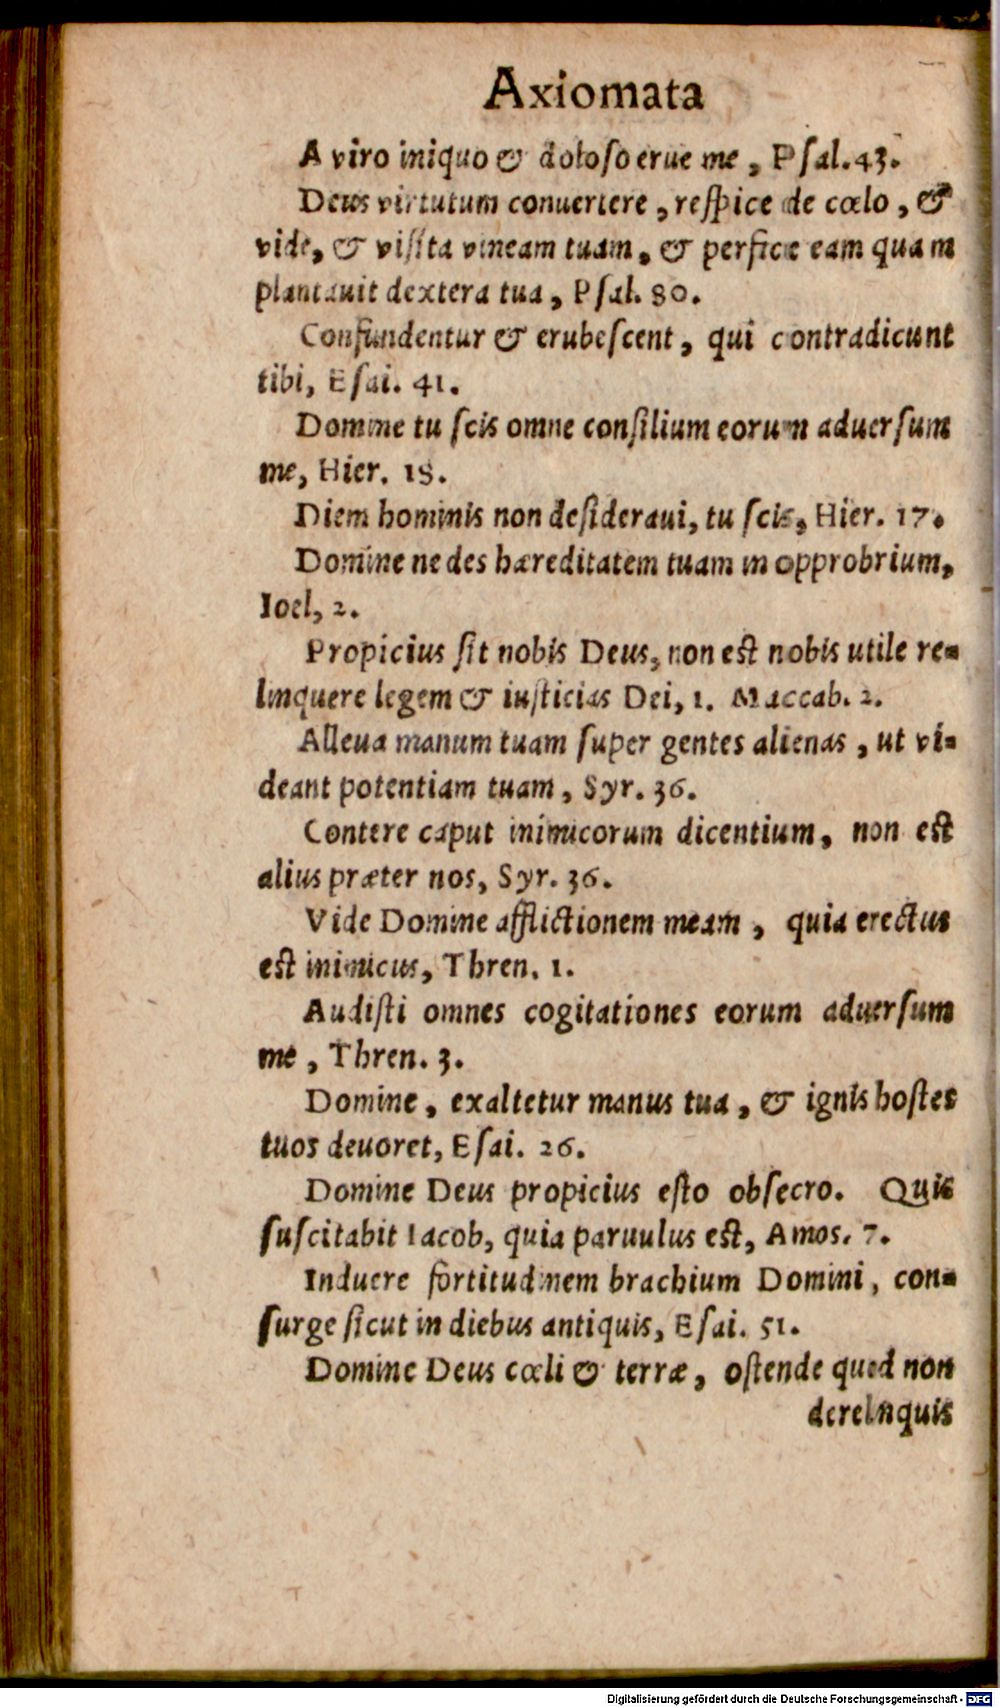 Axiomata
A viro iniquo & doloso erue me, Psal. 43.
Deus virtutum conuertere, respice de cœlo, &
vide, & visita vineam tuam, & perfice eam quam
plantauit dextera tua, Psal. 80.
Confundentur & erubescent, qui contradicunt
tibi, Esai. 41.
Domine tu scis omne consilium eorum aduersum
me, Hier. 18.
Diem hominis non desideraui, tu scis, Hier. 17.
Domine ne des hæreditatem tuam in opprobrium,
Ioel, 2.
Propicius sit nobis Deus, non est nobis utile re-
linquere legem & iusticias Dei, 1. Maccab. 2.
Alleua manum tuam super gentes alienas, ut vi-
deant potentiam tuam, Syr. 36.
Contere caput inimicorum dicentium, non est
alius præter nos, Syr. 36.
Vide Domine afflictionem meam, quia erectus
est inimicus, Thren. 1.
Audisti omnes cogitationes eorum aduersum
me, Thren. 3.
Domine, exaltetur manus tua, & ignis hostes
tuos deuoret, Esai. 26.
Domine Deus propicius esto obsecro. Quis
suscitabit Iacob, quia paruulus est, Amos. 7.
Induere fortitudinem brachium Domini, con-
surge sicut in diebus antiquis, Esai. 51.
Domine Deus cœli & terræ, ostende quod non
derelinquis
Digitalisierung gefördert durch die Deutsche Forschungsgemeinschaft - DFG